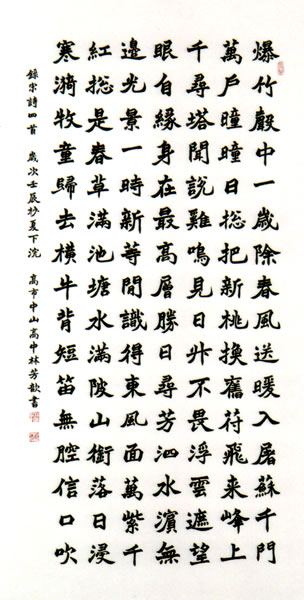 爆竹聲中一歲除春風送暖入屠蘇千門
萬戶曈曈日総把新桃換舊符飛來峰上
千尋塔聞說雞鳴見日升不畏浮雲遮望
眼自緣身在最高層勝日尋芳泗水濱無
邊光景一時新等閒識得東風面萬紫千
紅総是春草滿池塘水滿陂山銜落日浸
寒漪牧童歸去橫牛背短笛無腔信口吹
錄宋詩四首 歲次壬辰杪夏下浣 高市中山高中林芳歆書